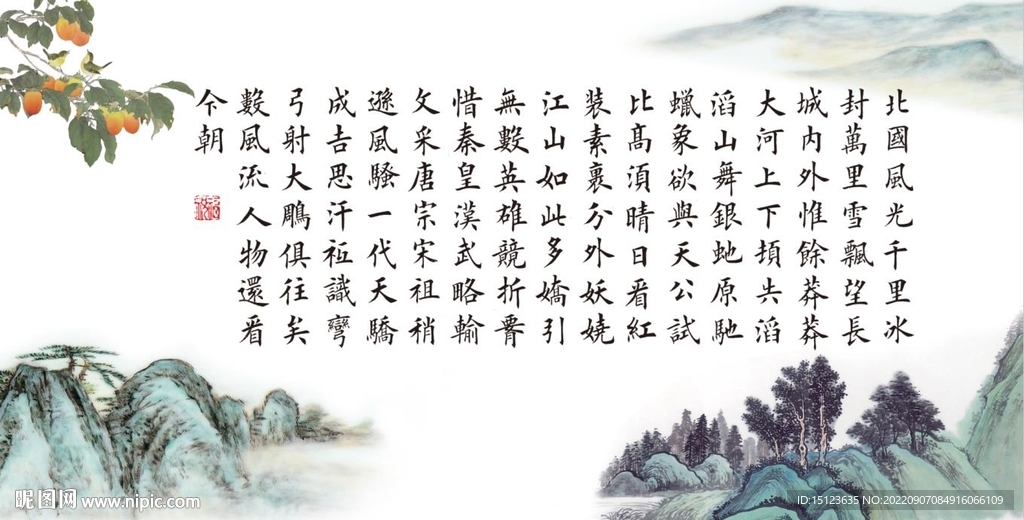 北國風光千里冰
封萬里雪飄望長
城内外惟餘莽莽
大河上下頓失滔
滔山舞銀虵原馳
蠟象欲與天公試
比高須晴日看紅
裝素裹分外妖嬈
江山如此多嬌引
無數英雄競折腰
惜秦皇漢武略輸
文采唐宗宋祖稍
遜風騷一代天驕
成吉思汗祗識彎
弓射大鵰俱往矣
數風流人物還看
今朝
昵图网 www.nipic.com
ID:15123635 NO:20220907084916066109